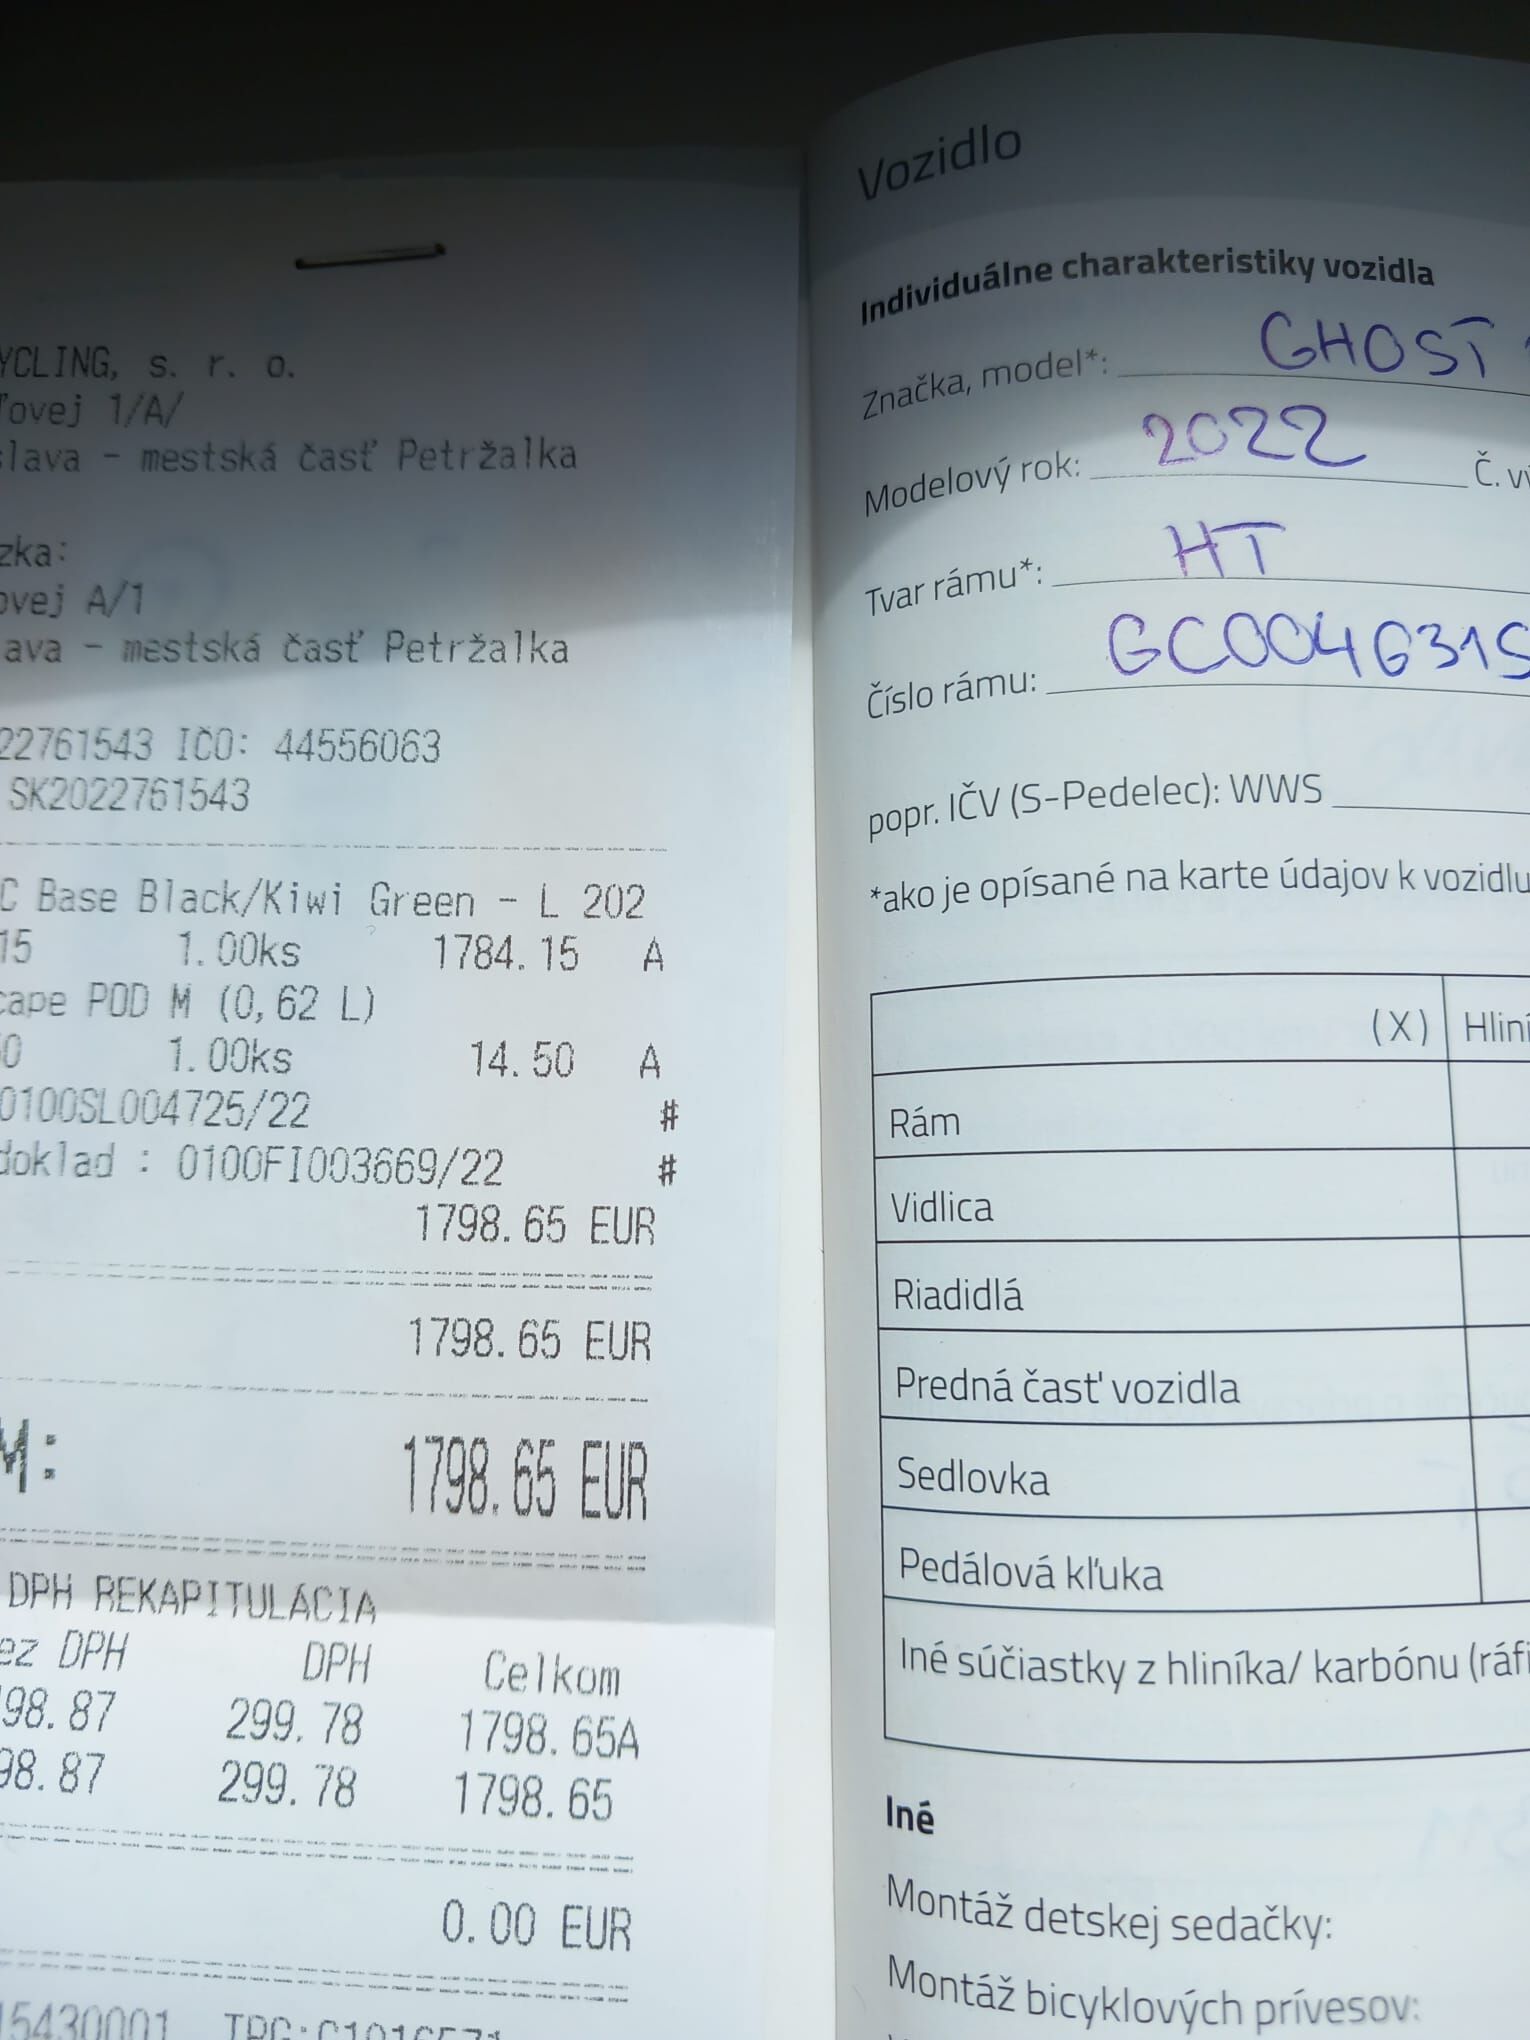 YCLING, s. r. o.
ľovej 1/A/
slava - mestská časť Petržalka
zka:
ovej A/1
lava - mestská časť Petržalka
22761543 IČO: 44556063
SK2022761543
C Base Black/Kiwi Green - L 202
15 1.00ks 1784.15 A
cape POD M (0,62 L)
50 1.00ks 14.50 A
0100SL004725/22 #
doklad : 0100FI003669/22 #
1798.65 EUR
1798.65 EUR
M: 1798.65 EUR
DPH REKAPITULÁCIA
ez DPH DPH Celkom
98.87 299.78 1798.65A
98.87 299.78 1798.65
0.00 EUR
15430001
Vozidlo
Individuálne charakteristiky vozidla
Značka, model*: GHOST
Modelový rok: 2022 Č. vý
Tvar rámu*: HT
Číslo rámu: GC004G31S
popr. IČV (S-Pedelec): WWS
*ako je opísané na karte údajov k vozidlu
(X) Hliní
Rám
Vidlica
Riadidlá
Predná časť vozidla
Sedlovka
Pedálová kľuka
Iné súčiastky z hliníka/ karbónu (ráfi
Iné
Montáž detskej sedačky:
Montáž bicyklových prívesov: